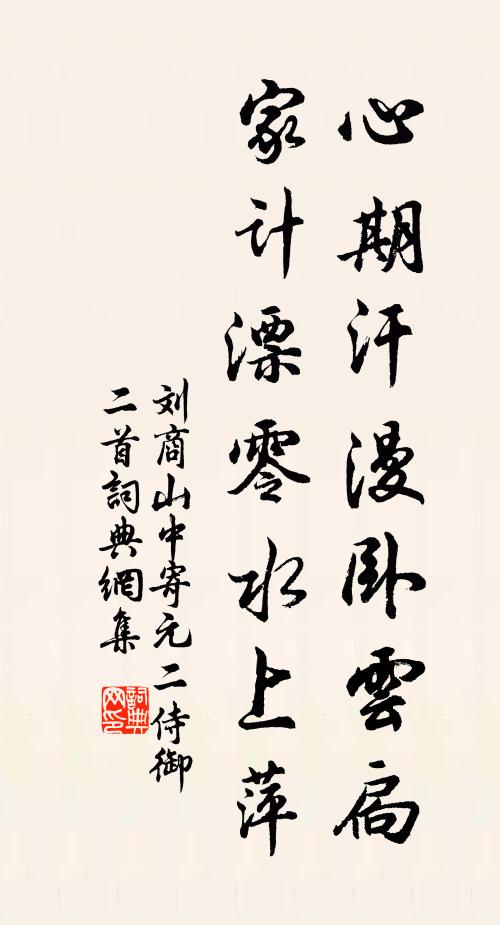 心期汗漫卧雲扃
家计漂零水上萍
刘商山中寄元二侍御
二首詞典網集
詞典
网印